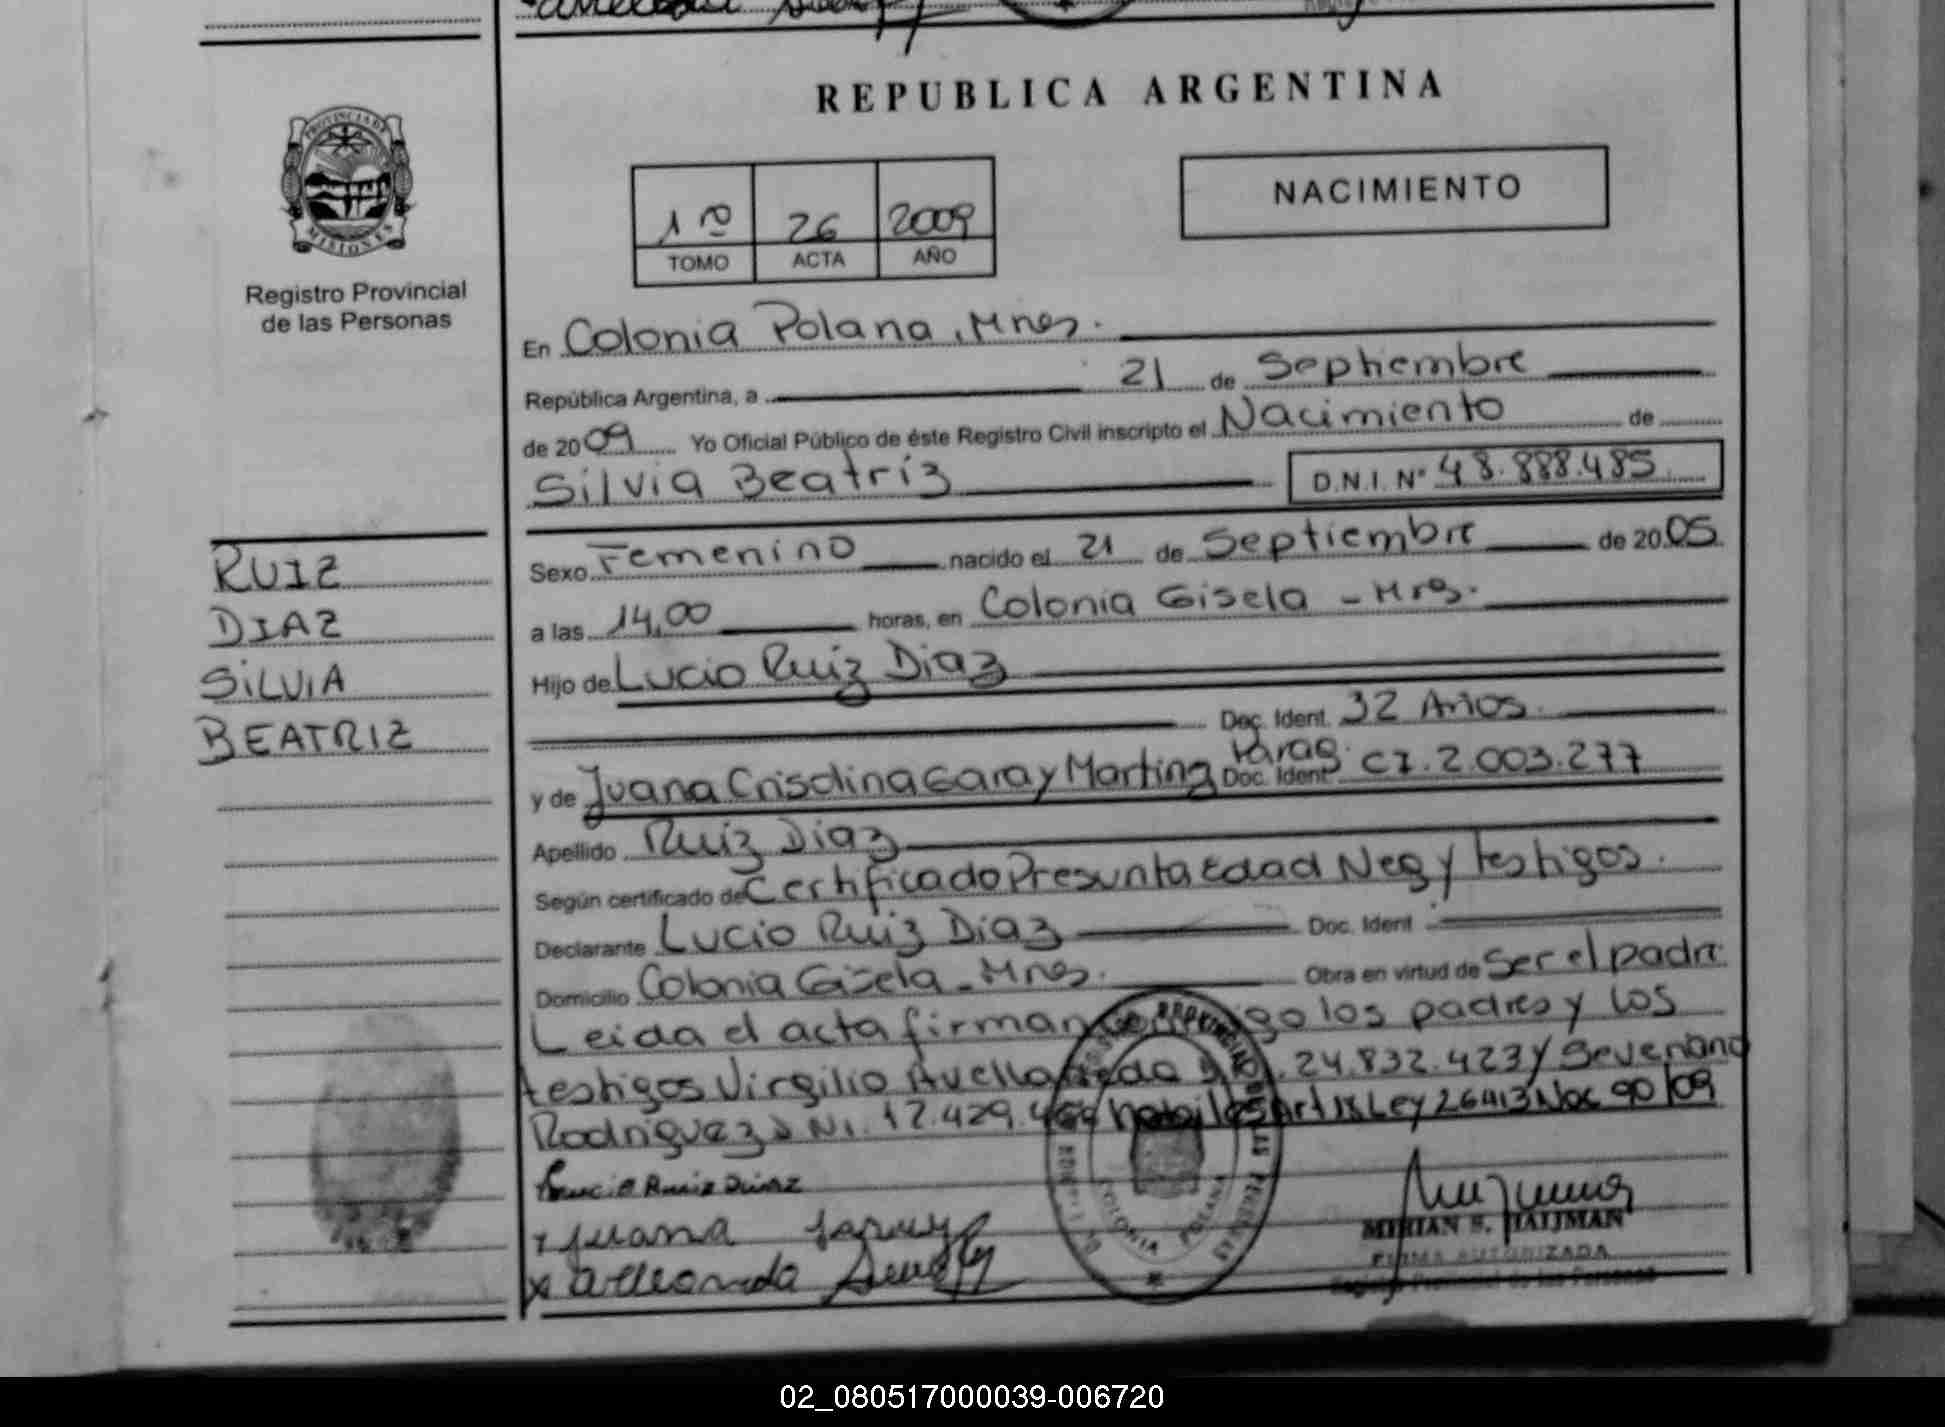 REPUBLICA ARGENTINA
PROVINCIA DE
MISIONES
Registro Provincial
de las Personas
1ro 26 2009
TOMO ACTA AÑO
NACIMIENTO
En Colonia Polana, Mnes.
República Argentina, a 21 de Septiembre
de 2009 Yo Oficial Público de éste Registro Civil inscripto el Nacimiento de
Silvia Beatríz D.N.I. Nº 48.888.485
RUIZ
DIAZ
SILVIA
BEATRIZ
Sexo Femenino nacido el 21 de Septiembre de 2005
a las 14,00 horas, en Colonia Gisela - Mns.
Hijo de Lucio Ruiz Diaz
Doc. Ident. 32 Años.
y de Juana Crisolina Garay Martinez Parag. Doc. Ident CI. 2.003.277
Apellido Ruiz Diaz
Según certificado de Certificado Presunta Edad Neg y testigos.
Declarante Lucio Ruiz Diaz Doc. Ident
Domicilio Colonia Gisela - Mnes. Obra en virtud de Ser el padre
Leida el acta firman conmigo los padres y los
testigos Virgilio Avellaneda 24.832.423 y Severiano
Rodriguez DNI. 17.429. habiles Art Ley 26413 Noc 90/09
Lucio Ruiz Diaz
x Juana Garay
MIRIAN S. HAIJMAN
FIRMA AUTORIZADA
Registro Provincial de las Personas
COLONIA POLANA
02_080517000039-006720